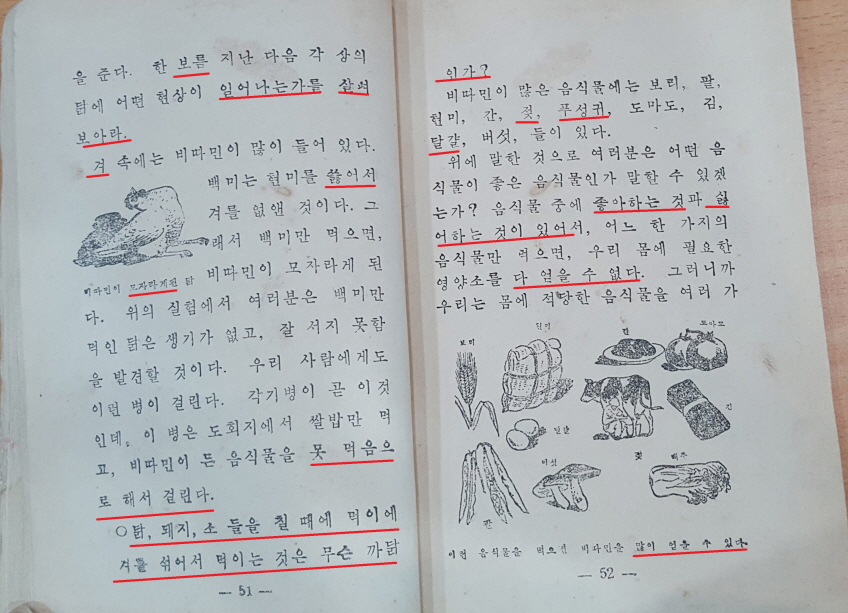 을 준다. 한 보름 지난 다음 각 상의
닭에 어떤 현상이 일어나는가를 살펴
보아라.
겨 속에는 비따민이 많이 들어 있다.
백미는 현미를 쓿어서
겨를 없앤 것이다. 그
래서 백미만 먹으면,
비따민이 모자라게된 닭
비따민이 모자라게 된
다. 위의 실험에서 여러분은 백미만
먹인 닭은 생기가 없고, 잘 서지 못함
을 발견할 것이다. 우리 사람에게도
이런 병이 걸린다. 각기병이 곧 이것
인데, 이 병은 도회지에서 쌀밥만 먹
고, 비따민이 든 음식물을 못 먹음으
로 해서 걸린다.
○닭, 돼지, 소 들을 칠 때에 먹이에
겨를 섞어서 먹이는 것은 무슨 까닭
— 51 —
인가?
비따민이 많은 음식물에는 보리, 팥,
현미, 간, 젖, 푸성귀, 도마도, 김,
달걀, 버섯, 들이 있다.
위에 말한 것으로 여러분은 어떤 음
식물이 좋은 음식물인가 말할 수 있겠
는가? 음식물 중에 좋아하는 것과 싫
어하는 것이 있어서, 어느 한 가지의
음식물만 먹으면, 우리 몸에 필요한
영양소를 다 얻을 수 없다. 그러니까
우리는 몸에 적당한 음식물을 여러 가
보리
현미
간
도마도
김
달걀
젖
버섯
배추
팥
이런 음식물을 먹으면 비따민을 많이 얻을 수 있다.
— 52 —